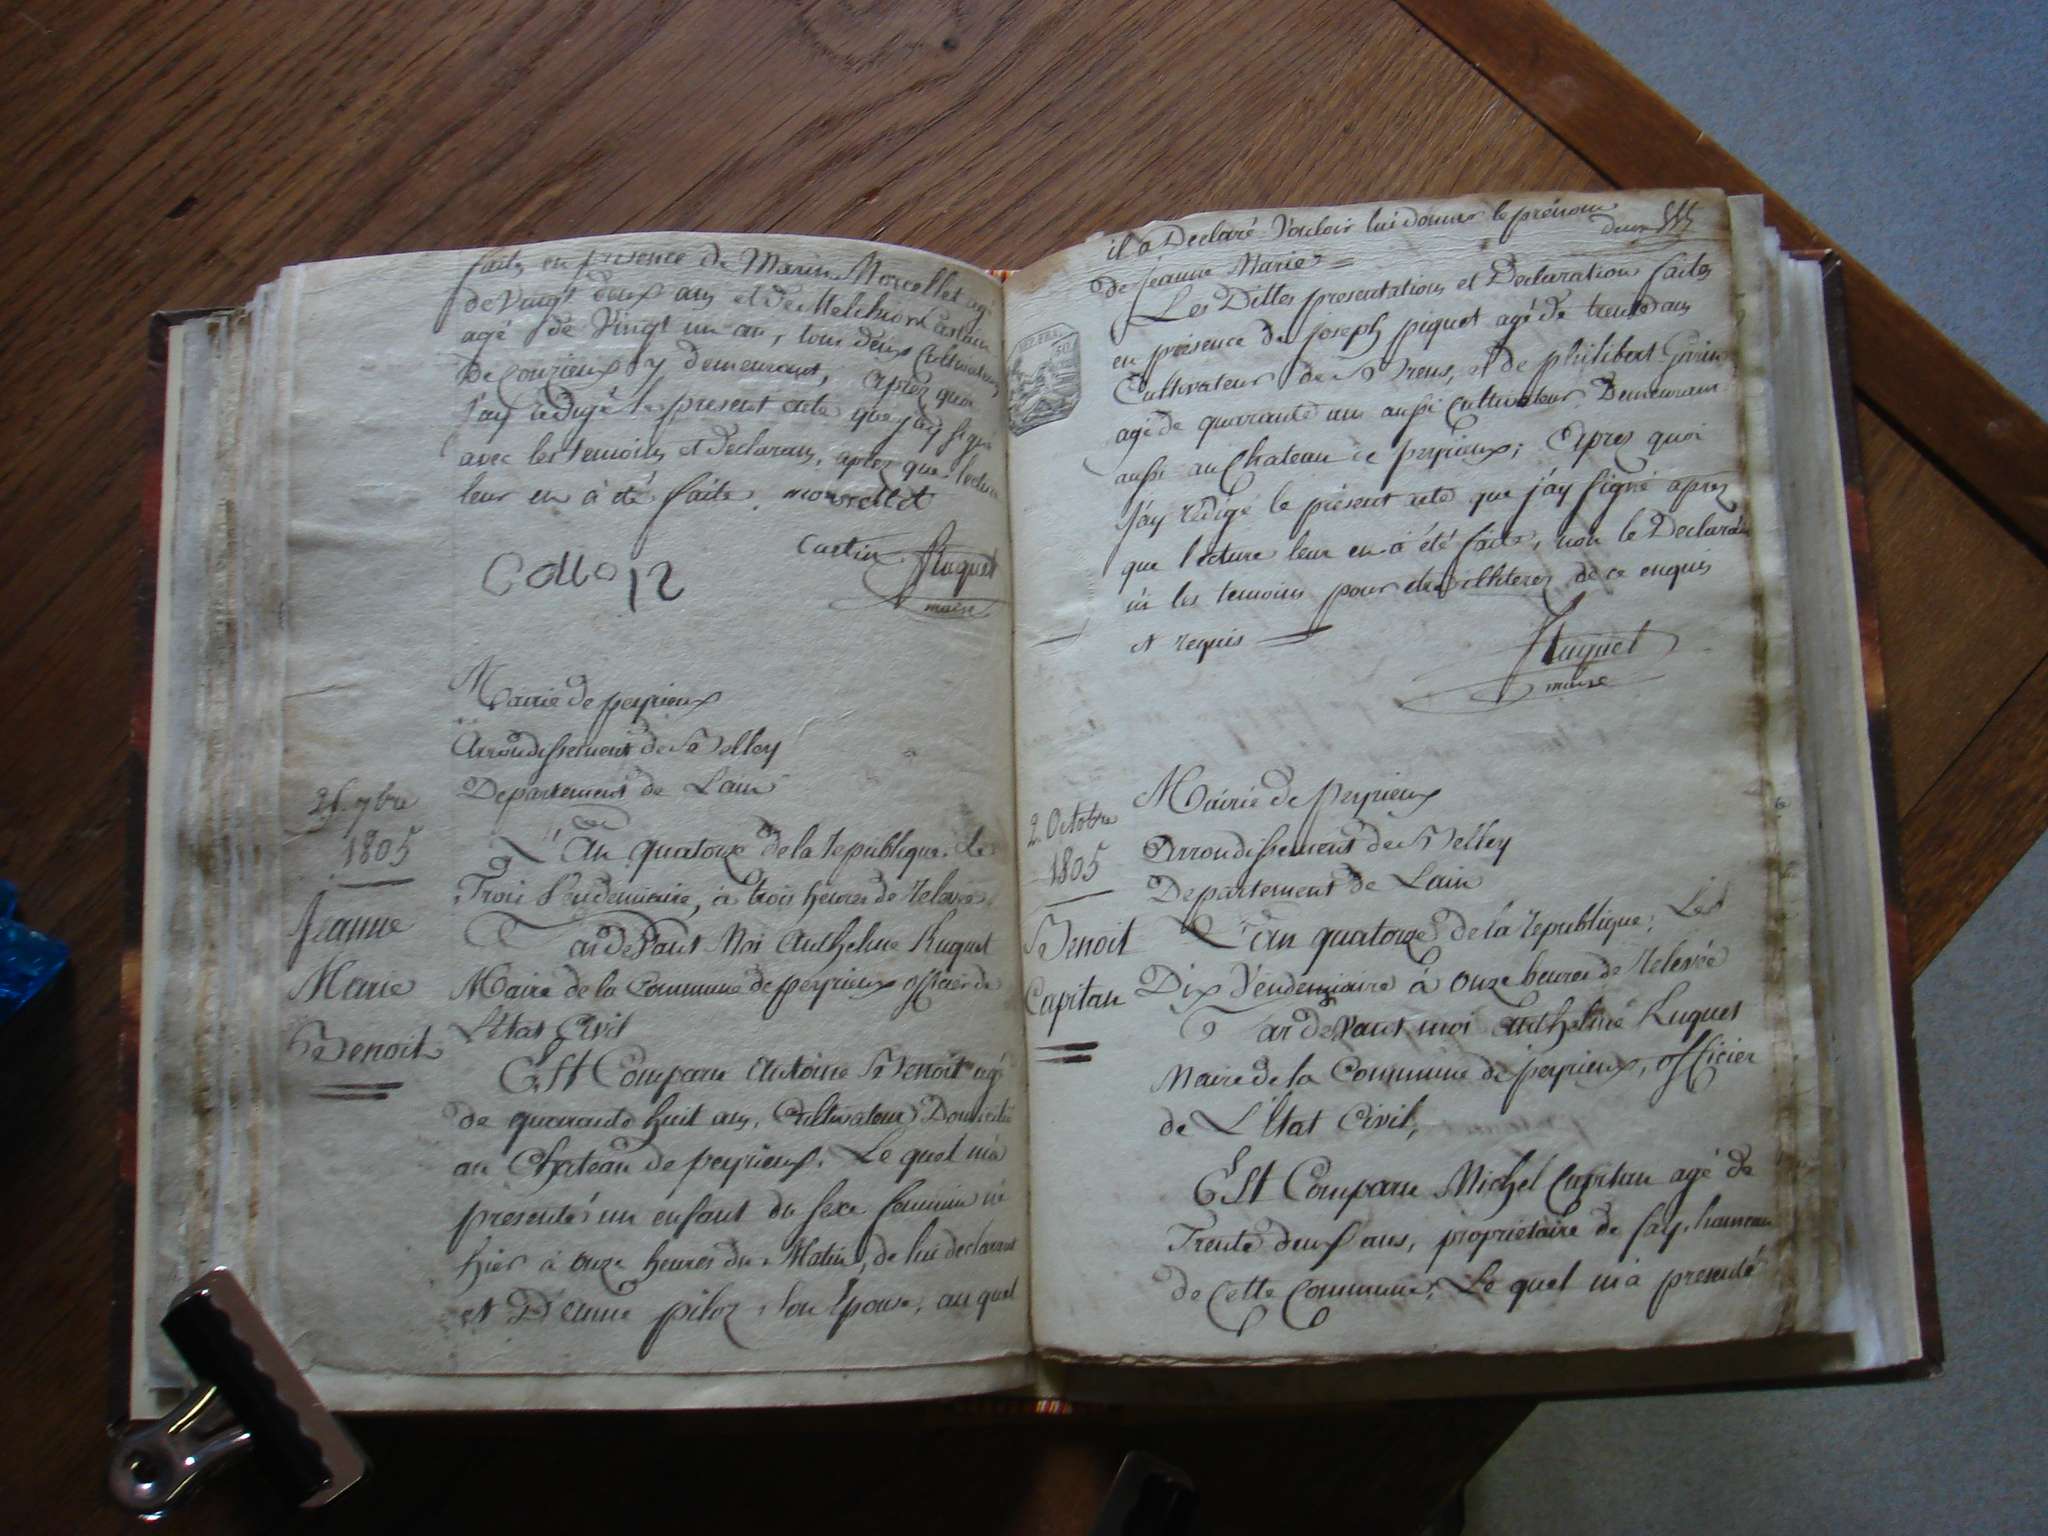 faits en presence de Marin Morcellet agé
de Vingt deux ans et de Melchior Castin
agé de Vingt un an, tous deux Cultivateurs
De Couzieux y demeurant, après quoi
J'ay rédigé le present acte que j'ay signé
avec les temoins et declarans, après que lecture
leur en à été faite. morcellet
Castin Huguet
maire
Mairie de peyrieux
Arrondissement de Belley
Departement de Lain
26. 7bre
1805
Jeanne
Marie
Benoit
L'An quatorze de la republique. Le
Trois Vendemiaire, à trois heures de relevée
Pardevant Moi Anthelme Huguet
Maire de la Commune de peyrieux officier de
L'Etat Civil
Est Comparu Antoine Benoit agé
de quarante huit ans, Cultivateur Domicilié
au Chateau de peyrieux. Le quel m'a
presenté un enfant du sexe feminin né
hier à onze heures du Matin, de lui declarant
et D'Anne piloz, son Epouse, au quel
il a Declaré Vouloir lui donner le prénom
de Jeanne Marie =
deux
Les Dittes presentations et Declaration faites
en présence de joseph piquet agé de trente ans
Cultivateur de Brens, et de philibert
agé de quarante ans aussi Cultivateur Demeurant
aussi au Chateau de peyrieux; Apres quoi
J'ay rédigé le présent acte que j'ay signé apres
que lecture leur en à été faite, non le Declarant
ni les temoins pour être illiterez de ce enquis
et requis
Huguet
maire
Mairie de Peyrieux
Arrondissement de Belley
Departement de Lain
2. Octobre
1805
Benoit
Capitan
L'An quatorze de la republique; Le
Dix Vendemiaire à Onze heures de relevée
Pardevant moi Anthelme Huguet
Maire de la Commune de peyrieux, officier
de L'Etat Civil,
Est Comparu Michel Capitan agé de
Trente deux ans, propriétaire de fay, hameau
de Cette Commune, Le quel m'a presenté